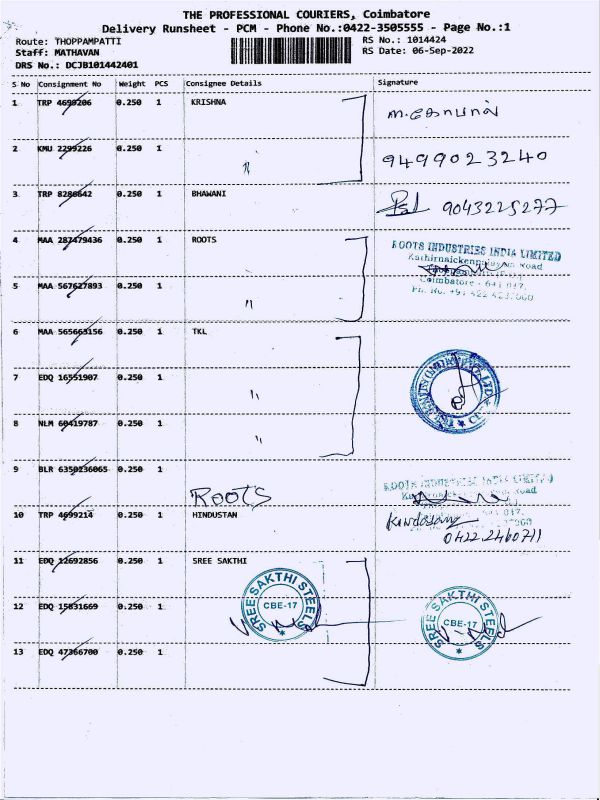 THE PROFESSIONAL COURIERS, Coimbatore
Delivery Runsheet - PCM - Phone No.:0422-3505555 - Page No.:1
Route: THOPPAMPATTI
Staff: MATHAVAN
DRS No.: DCJB101442401
RS No.: 1014424
RS Date: 06-Sep-2022
S No Consignment No Weight PCS Consignee Details Signature
1 TRP 4699206 0.250 1 KRISHNA
2 KMU 2299226 0.250 1 " 9499023240
3 TRP 8286642 0.250 1 BHAWANI 9043225277
4 MAA 287479436 0.250 1 ROOTS
ROOTS INDUSTRIES INDIA LIMITED
5 MAA 567627893 0.250 1 "
Coimbatore - 641 017.
6 MAA 565663156 0.250 1 TKL
7 EDQ 16551907 0.250 1 "
8 NLM 60419787 0.250 1 "
9 BLR 6350236065 0.250 1 ROOTS
ROOTS INDUSTRIES INDIA LIMITED
10 TRP 4699214 0.250 1 HINDUSTAN
0422 2460711
11 EDQ 12692856 0.250 1 SREE SAKTHI
SREE SAKTHI STEELS CBE-17
12 EDQ 15831669 0.250 1
SREE SAKTHI STEELS CBE-17
13 EDQ 47366700 0.250 1